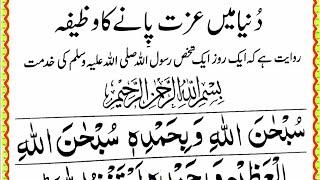 دُنیا میں عزت پانے کا وظیفہ
روایت ہے کہ ایک روز ایک شخص رسول اللہ صلی اللہ علیہ وسلم کی خدمت
بِسْمِ اللهِ الرَّحْمٰنِ الرَّحِيْمِ
سُبْحٰنَ اللهِ وَ بِحَمْدِهٖ سُبْحٰنَ اللهِ
الْعَظِيْمِ وَ بِحَمْدِهٖ